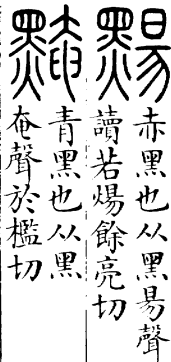 䵮
赤黑也从黑昜聲
讀若煬餘亮切
黤
青黑也从黑
奄聲於檻切